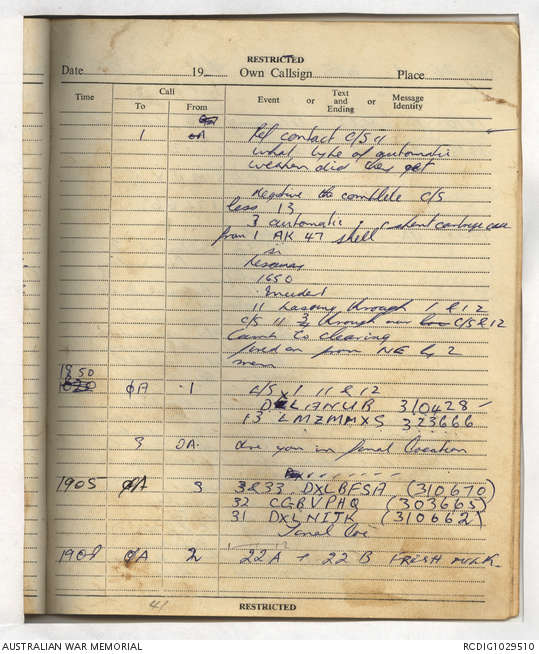 RESTRICTED
Date 19 Own Callsign Place
Time Call Event or Text and Ending or Message Identity
To From
1 Ref contact C/S 11
what type of automatic
weapon did they get
Negative the complete C/S
less 13
3 automatic
from 1 AK 47 shell
1650
11 through 1 & 12
C/S 11 through our C/S & 12
Came to clearing
fired on from NE by 2
men
1850
ØA 1 C/S 1 11 & 12
310428
13 LMZMMXS 323666
3 0A. are you in final location
1905 ØA 3 3&33 DXLBFSA (310670)
32 CGBVPHQ (303665)
31 DXLNIJK (310662)
Final Loc
1908 ØA 2 22A + 22B FRESH MILK
41
RESTRICTED
AUSTRALIAN WAR MEMORIAL
RCDIG1029510